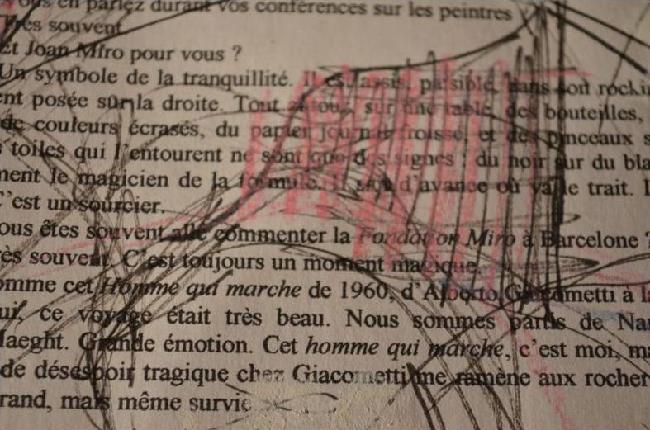 ous en parlez durant vos conférences sur les peintres
Très souvent
Et Joan Miro pour vous ?
Un symbole de la tranquillité. Il est assis, paisible, dans son rocki
ent posée sur la droite. Tout autour, sur une table, des bouteilles,
de couleurs écrasés, du papier journal froissé, et des pinceaux s
s toiles qui l'entourent ne sont que des signes : du noir sur du bla
ment le magicien de la formule. Il sait d'avance où va le trait. I
C'est un sourcier.
ous êtes souvent allé commenter la Fondation Miro à Barcelone ?
rès souvent. C'est toujours un moment magique.
omme cet Homme qui marche de 1960, d'Alberto Giacometti à la
ui, ce voyage était très beau. Nous sommes partis de Na
Maeght. Grande émotion. Cet homme qui marche, c'est moi, ma
de désespoir tragique chez Giacometti me ramène aux rocher
rand, mais même survie